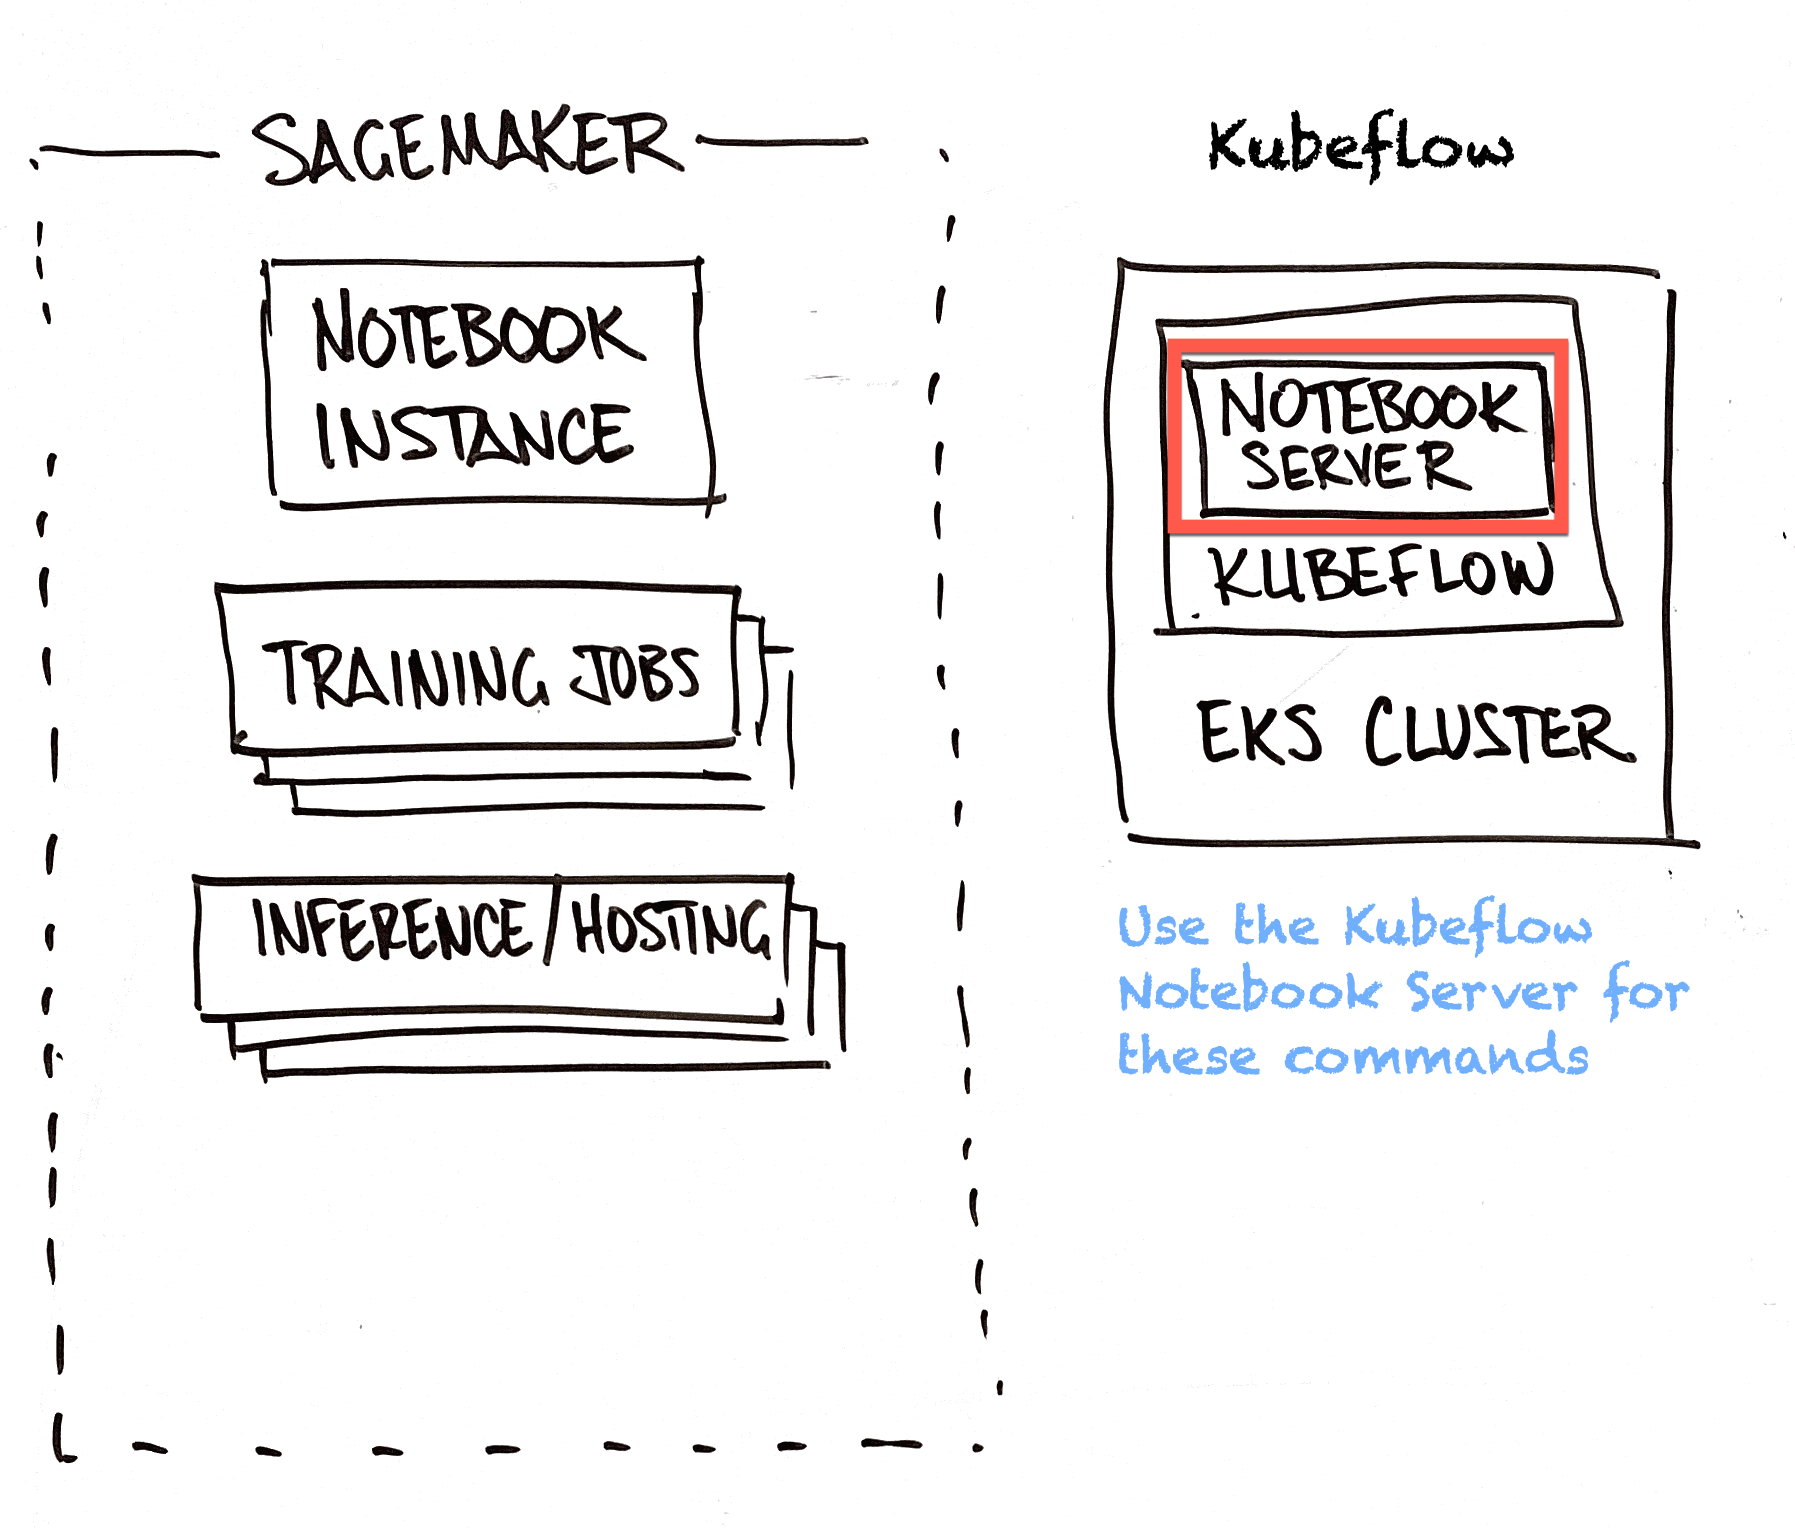 SAGEMAKER
NOTEBOOK
INSTANCE
TRAINING JOBS
INFERENCE/HOSTING
Kubeflow
NOTEBOOK
SERVER
KUBEFLOW
EKS CLUSTER
Use the Kubeflow
Notebook Server for
these commands